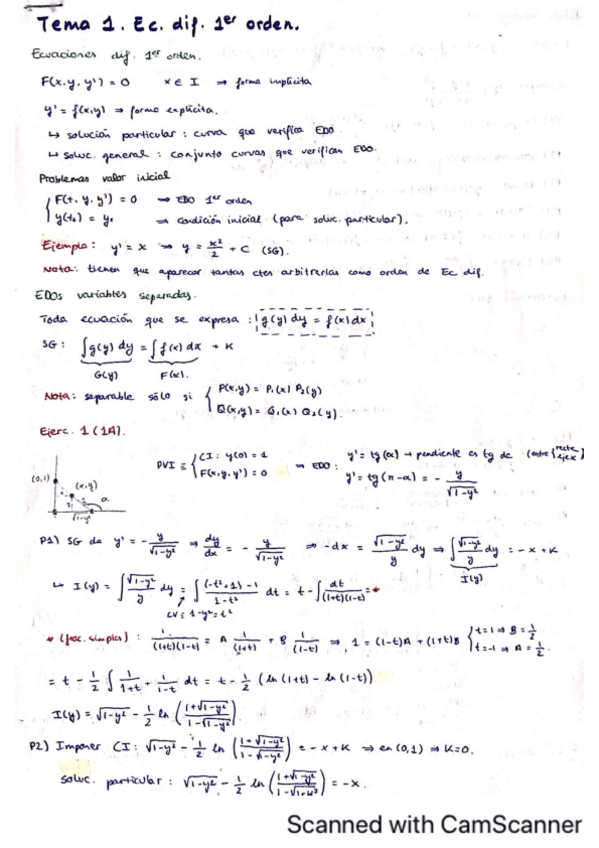 Tema 1. Ec. dif. 1er orden.
Ecuaciones dif. 1er orden.
F(x, y, y') = 0 x ∈ I → forma implícita
y' = f(x,y) ⇒ forma explícita.
↳ solución particular : curva que verifica EDO
↳ soluc. general : conjunto curvas que verifican EDO.
Problemas valor inicial
{ F(t, y, y') = 0 → EDO 1er orden
y(t₀) = y₀ → condición inicial (para soluc. particular).
Ejemplo: y' = x → y = x²/2 + C (SG).
Nota: tienen que aparecer tantas ctes arbitrarias como orden de Ec dif.
EDOs variables separadas.
Toda ecuación que se expresa : g(y) dy = f(x) dx
SG : ∫g(y) dy = ∫f(x) dx + K
G(y) F(x).
Nota: separable sólo si { P(x,y) = P₁(x) P₂(y)
Q(x,y) = Q₁(x) Q₂(y).
Ejerc. 1 (1A).
PVI ≡ { CI : y(0) = 1
F(x, y, y') = 0 ⇒ EDO :
y' = tg(α) → pendiente es tg de (entre { recta
eje x
y' = tg(π-α) = - y/√(1-y²)
(0,1) (x,y) α
√(1-y²)
P1) SG de y' = - y/√(1-y²) ⇒ dy/dx = - y/√(1-y²) ⇒ -dx = √(1-y²)/y dy ⇒ ∫ √(1-y²)/y dy = -x + K
I(y)
↳ I(y) = ∫ √(1-y²)/y dy = ∫ ((-t²+1)-1)/(1-t²) dt = t - ∫ dt/((1+t)(1-t)) = *
CV: 1-y² = t²
* (frac. simples) : 1/((1+t)(1-t)) = A 1/(1+t) + B 1/(1-t) ⇒ 1 = (1-t)A + (1+t)B { t=1 ⇒ B = 1/2
t=-1 ⇒ A = 1/2.
= t - 1/2 ∫ 1/(1+t) + 1/(1-t) dt = t - 1/2 (ln(1+t) - ln(1-t))
I(y) = √(1-y²) - 1/2 ln ((1+√(1-y²))/(1-√(1-y²)))
P2) Imponer CI : √(1-y²) - 1/2 ln ((1+√(1-y²))/(1-√(1-y²))) = -x + K ⇒ en (0,1) ⇒ K=0.
soluc. particular : √(1-y²) - 1/2 ln ((1+√(1-y²))/(1-√(1-y²))) = -x.
Scanned with CamScanner